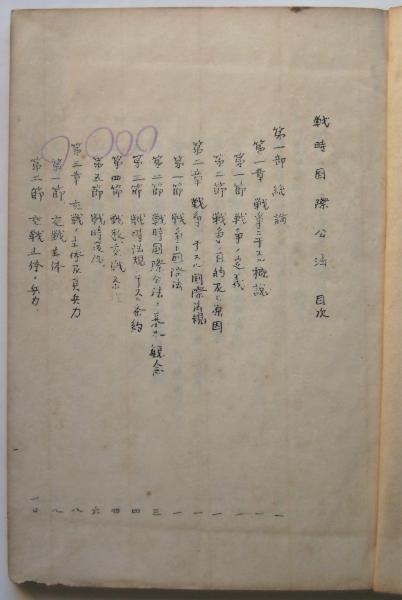 戦時国際公法 目次
第一部 総論
第一章 戦争ニ関スル概説 一
第一節 戦争ノ定義 一
第二節 戦争ノ目的及ビ原因 一
第二章 戦争ニ関スル国際法規 一
第一節 戦争ト国際法 一
第二節 戦時国際公法ノ基本観念 三
第三節 戦時法規ニ関スル条約 四
第四節 四
第五節 戦時 六
第三章 交戦ノ主体及其兵力 八
第一節 交戦主体 八
第二節 交戦主体ノ兵力